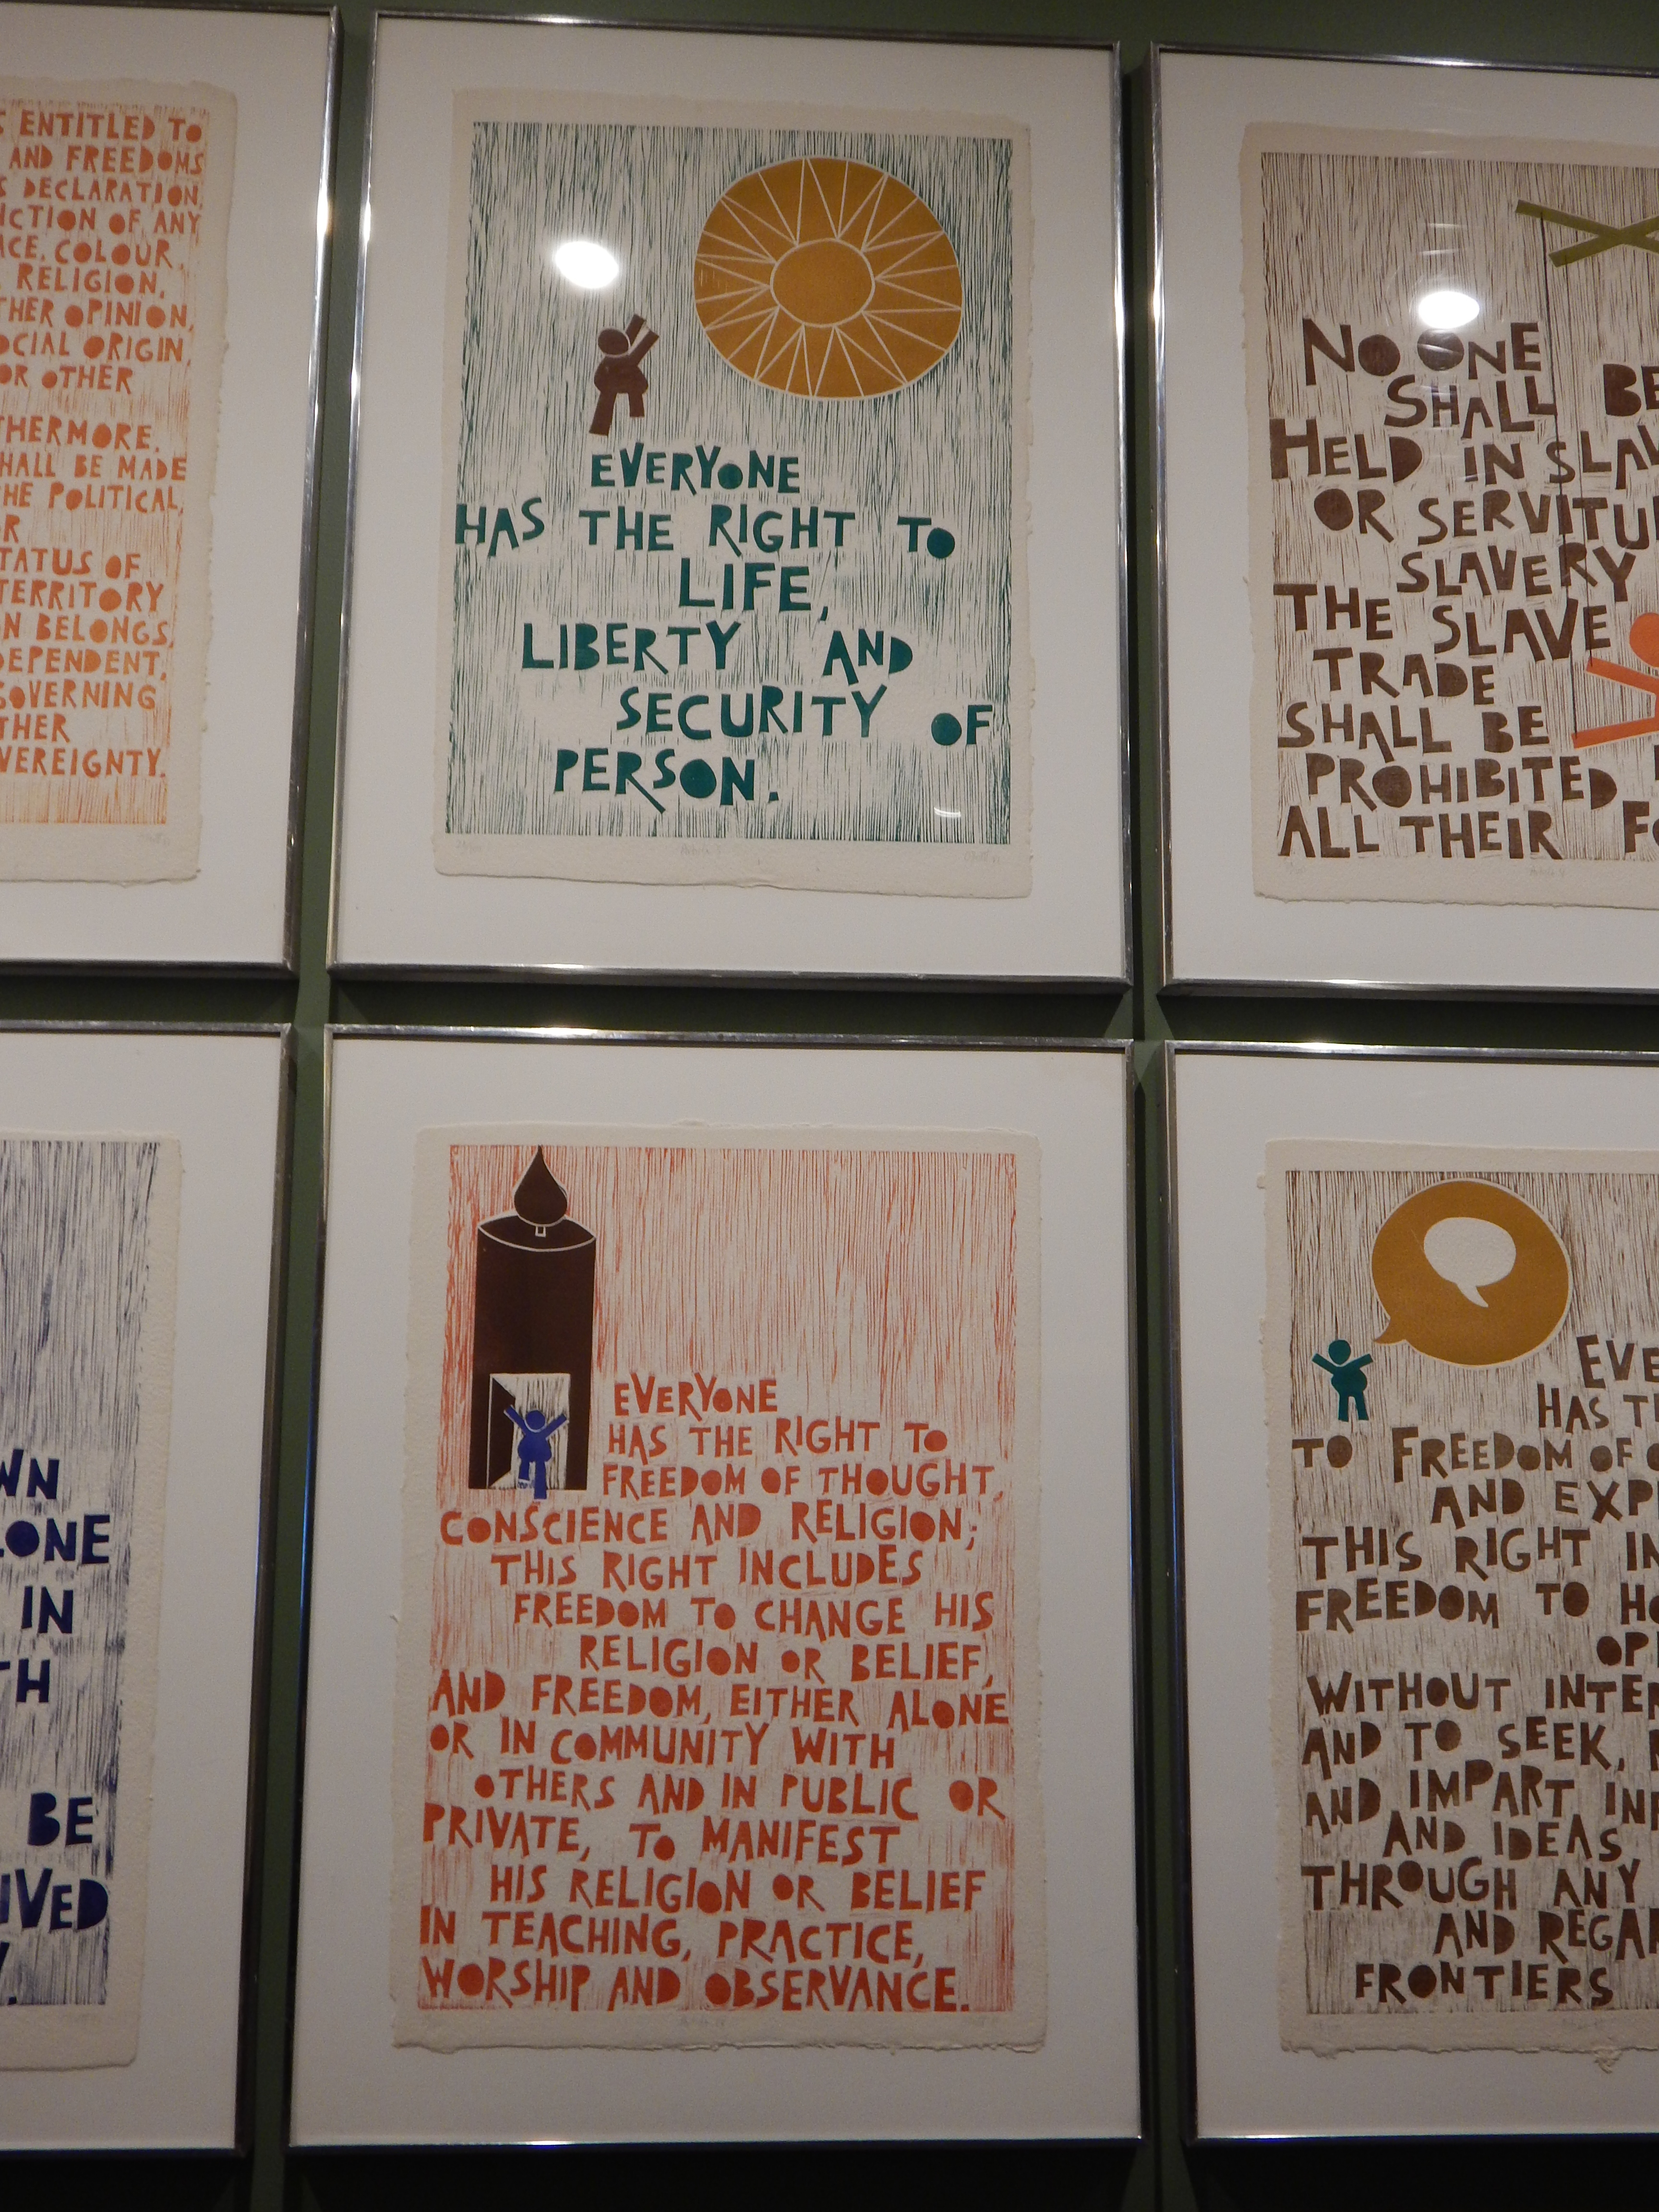 ENTITLED TO
AND FREEDOMS
DECLARATION,
OF ANY
COLOUR,
RELIGION,
OPINION,
ORIGIN,
OR OTHER
BE MADE
POLITICAL,
OF
TERRITORY
BELONGS,
EVERYONE
HAS THE RIGHT TO
LIFE,
LIBERTY AND
SECURITY OF
PERSON.
NO ONE
SHALL BE
HELD IN
OR
SLAVERY
THE SLAVE
TRADE
SHALL BE
PROHIBITED
ALL THEIR
IN
BE
EVERYONE
HAS THE RIGHT TO
FREEDOM OF THOUGHT,
CONSCIENCE AND RELIGION;
THIS RIGHT INCLUDES
FREEDOM TO CHANGE HIS
RELIGION OR BELIEF,
AND FREEDOM, EITHER ALONE
OR IN COMMUNITY WITH
OTHERS AND IN PUBLIC OR
PRIVATE, TO MANIFEST
HIS RELIGION OR BELIEF
IN TEACHING, PRACTICE,
WORSHIP AND OBSERVANCE.
HAS
TO FREEDOM OF
AND
THIS RIGHT
FREEDOM TO
WITHOUT
AND TO SEEK,
AND IMPART
AND IDEAS
THROUGH ANY
AND
FRONTIERS